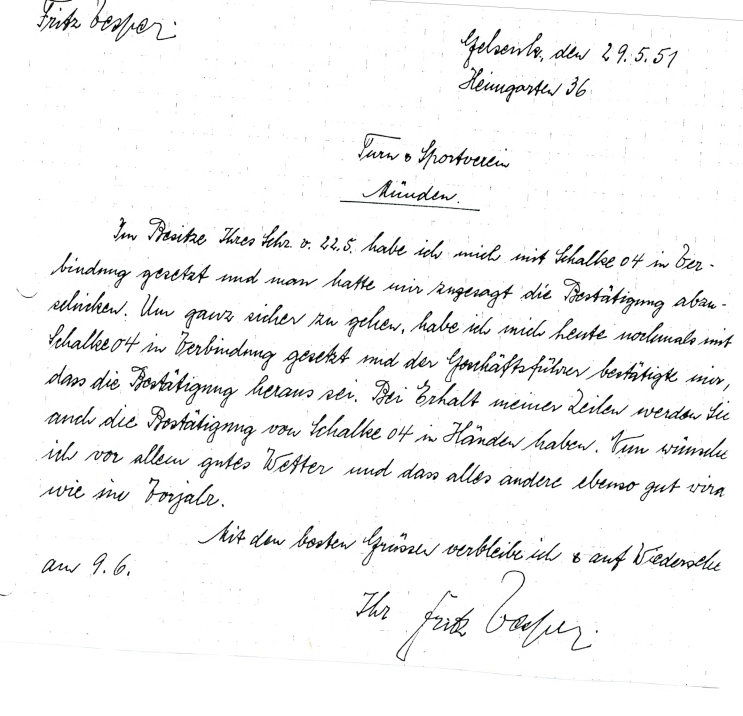 Fritz Vesper.
Gelsenk., den 29.5.51
Heimgarten 36
Turn & Sportverein
Münden.
Im Besitze Ihres Schr. v. 22.5. habe ich mich mit Schalke 04 in Ver-
bindung gesetzt und man hatte mir zugesagt die Bestätigung abzu-
schicken. Um ganz sicher zu gehen, habe ich mich heute nochmals mit
Schalke 04 in Verbindung gesetzt und der Geschäftsführer bestätigte mir,
dass die Bestätigung heraus sei. Bei Erhalt meiner Zeilen werden Sie
auch die Bestätigung von Schalke 04 in Händen haben. Nun wünsche
ich vor allem gutes Wetter und dass alles andere ebenso gut wird
wie im Vorjahr.
Mit den besten Grüssen verbleibe ich & auf Wiedersehen
am 9.6.
Ihr Fritz Vesper.